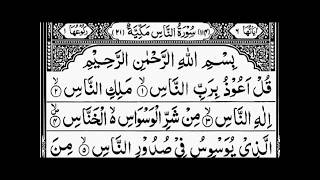 اٰیاتها ٦ (١١٤) سُوْرَةُ النَّاسِ مَكِّیَّةٌ (٢١) رکوعها ١
بِسْمِ اللّٰهِ الرَّحْمٰنِ الرَّحِیْمِ
قُلْ اَعُوْذُ بِرَبِّ النَّاسِ ۙ﴿١﴾ مَلِكِ النَّاسِ ۙ﴿٢﴾
اِلٰهِ النَّاسِ ۙ﴿٣﴾ مِنْ شَرِّ الْوَسْوَاسِ ۙ۬ الْخَنَّاسِ ۪ۙ﴿٤﴾
الَّذِیْ یُوَسْوِسُ فِیْ صُدُوْرِ النَّاسِ ۙ﴿٥﴾ مِنَ